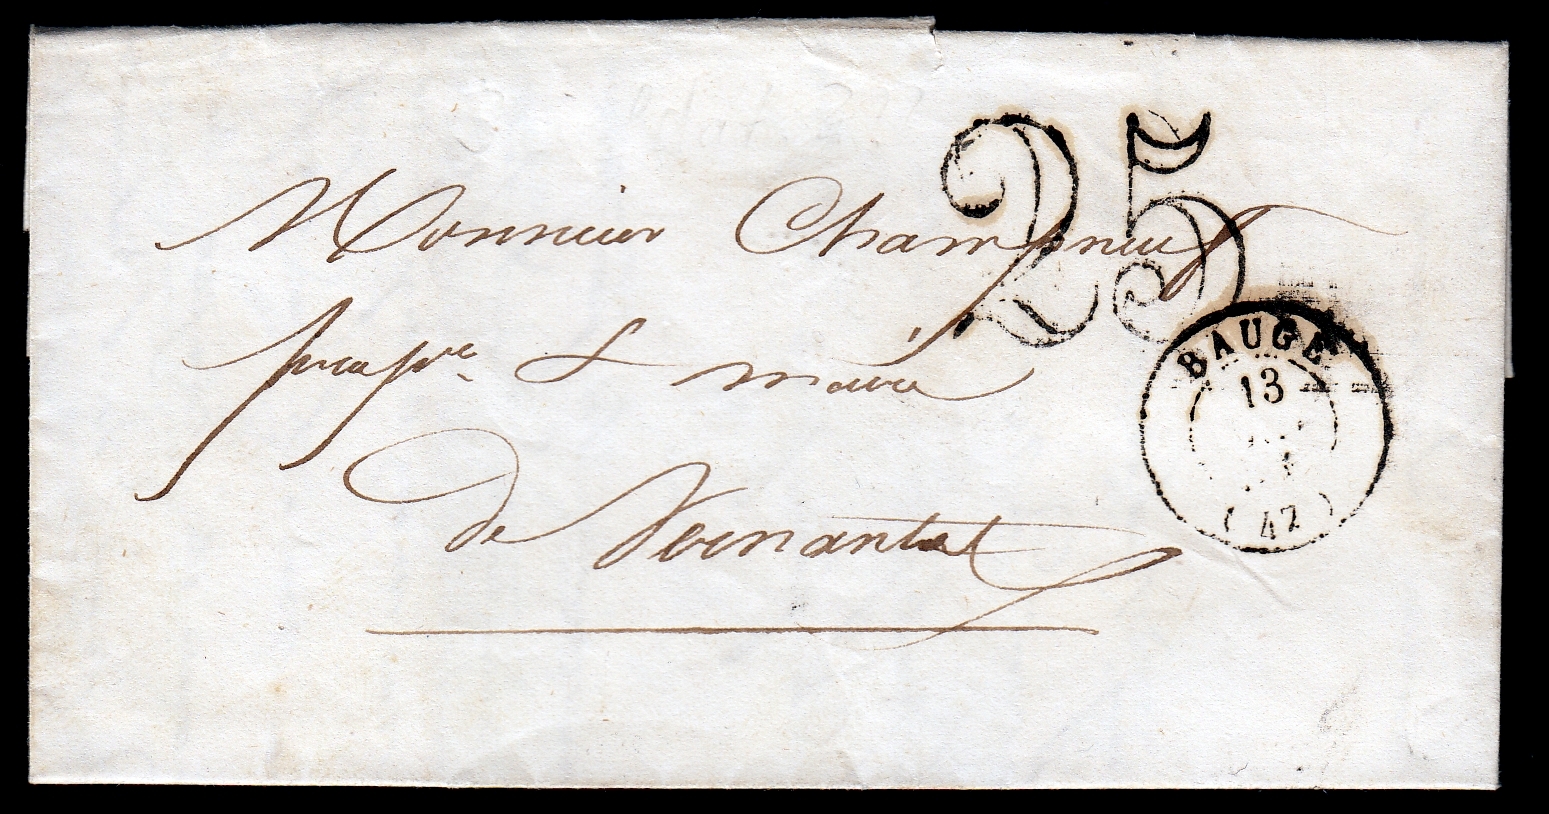 25
Monsieur Champneuf
prop.re & maire
de Vernantes
BAUGÉ
13
(47)